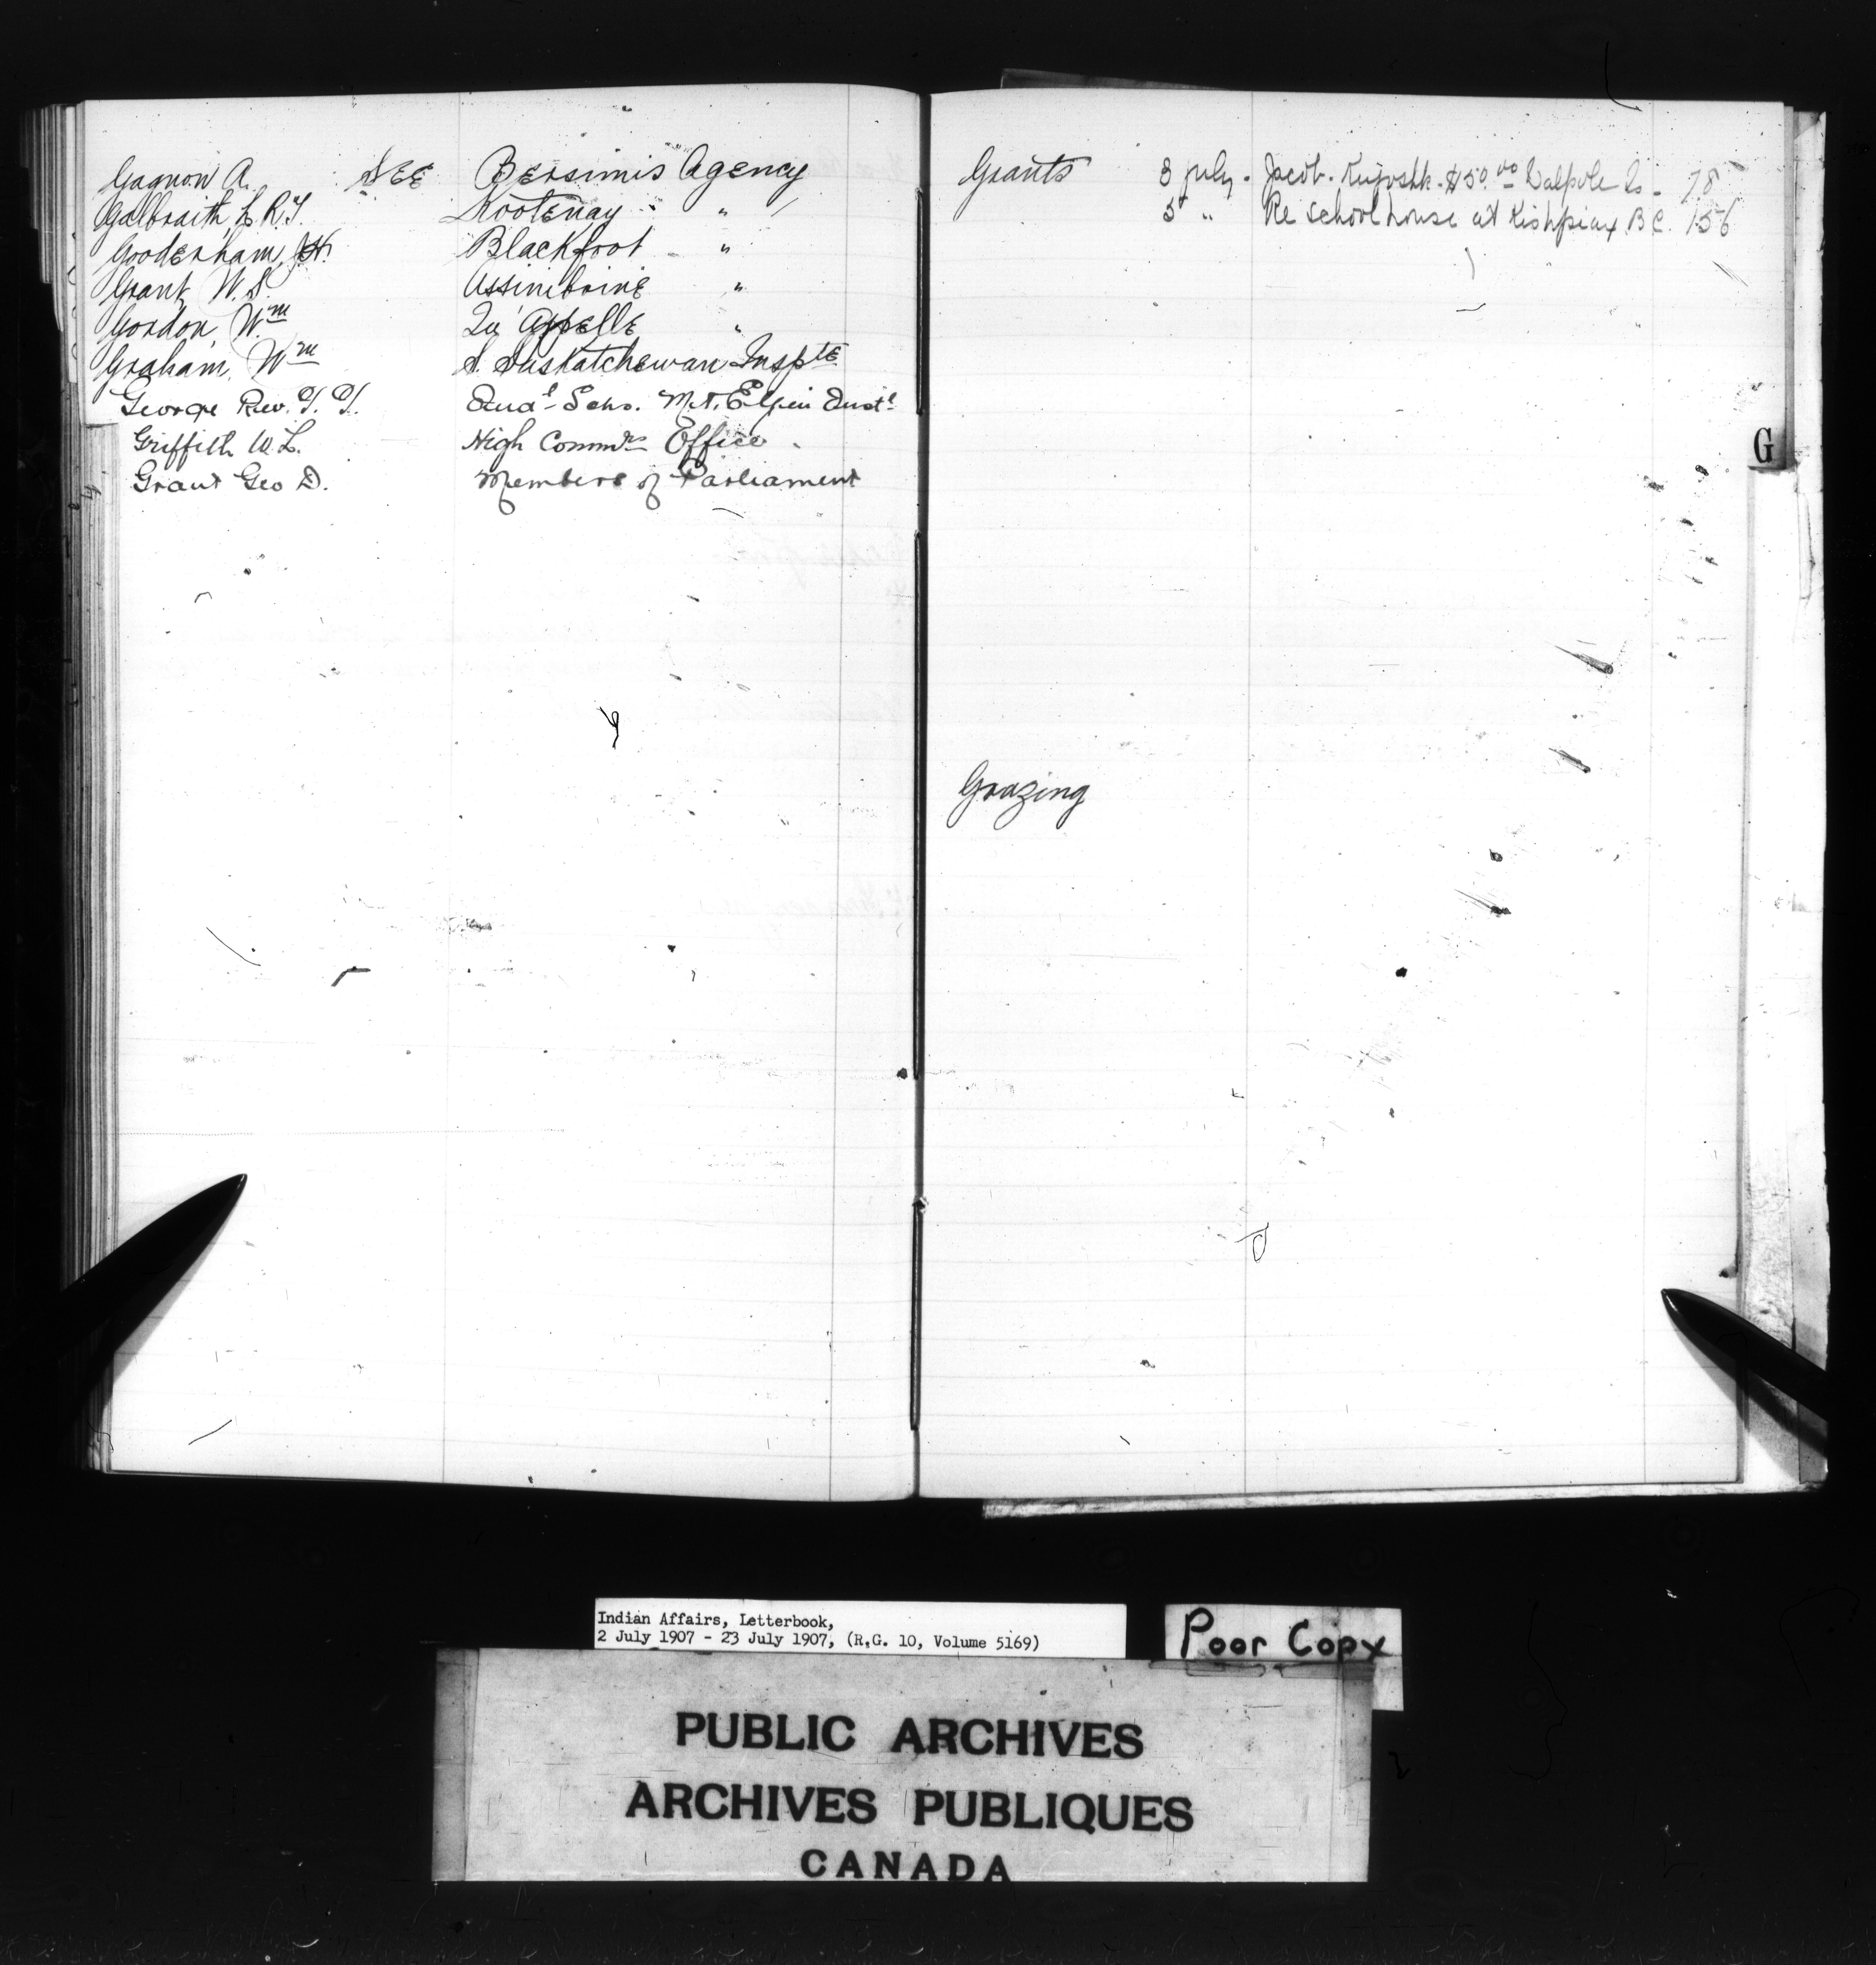 Gagnon A. SEE Bersimis Agency
Galbraith, L. R. T. Kootenay "
Gooderham, J.H. Blackfoot "
Grant, W. S. Assiniboine "
Gordon, Wm Qu'Appelle "
Graham, Wm S. Saskatchewan Inspte
George Rev. T. T. Indl Schs. Mt. Elgin Instt
Griffith W. L. High Commrs Office
Grant Geo D. Members of Parliament
Grants 3 July - Jacob. $50.00 Walpole Is - 78
5 " Re school house at Kishpiax B.C. 156
G
Grazing
Indian Affairs, Letterbook,
2 July 1907 - 23 July 1907, (R.G. 10, Volume 5169)
Poor Copy
PUBLIC ARCHIVES
ARCHIVES PUBLIQUES
CANADA